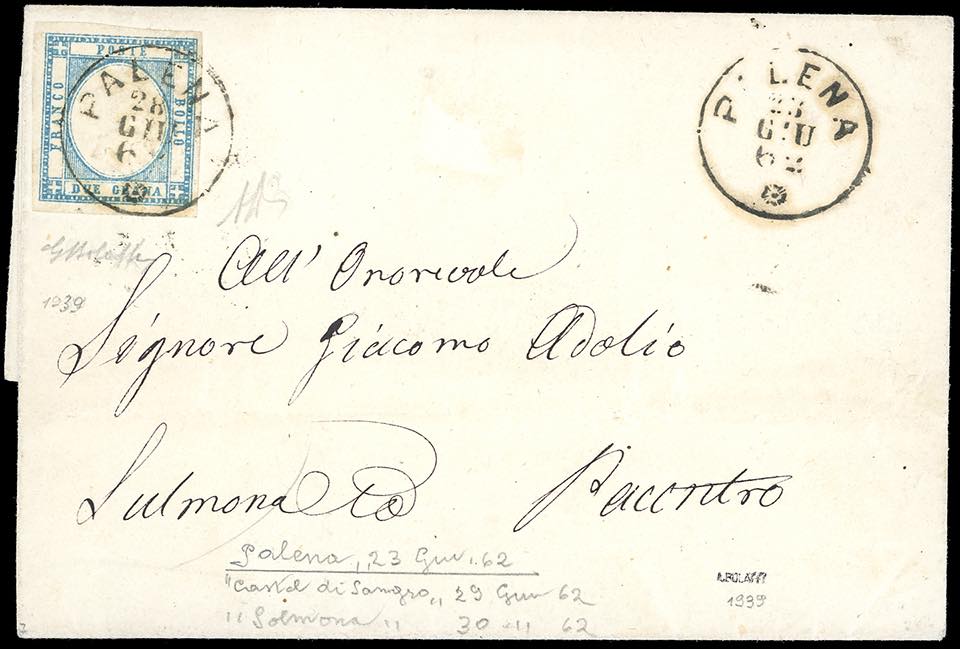 POSTE
FRANCO
BOLLO
DUE GRANA
PALENA
28
GIU
62
PALENA
23
GIU
62
G Bolaffi
1939
All' Onorevole
Signore Giacomo Adolio
Sulmona Pe Pacentro
Palena „ 23 Giu . 62
"Castel di Sangro „ 29 Giu 62
" Solmona " 30 " 62
A. BOLAFFI
1939